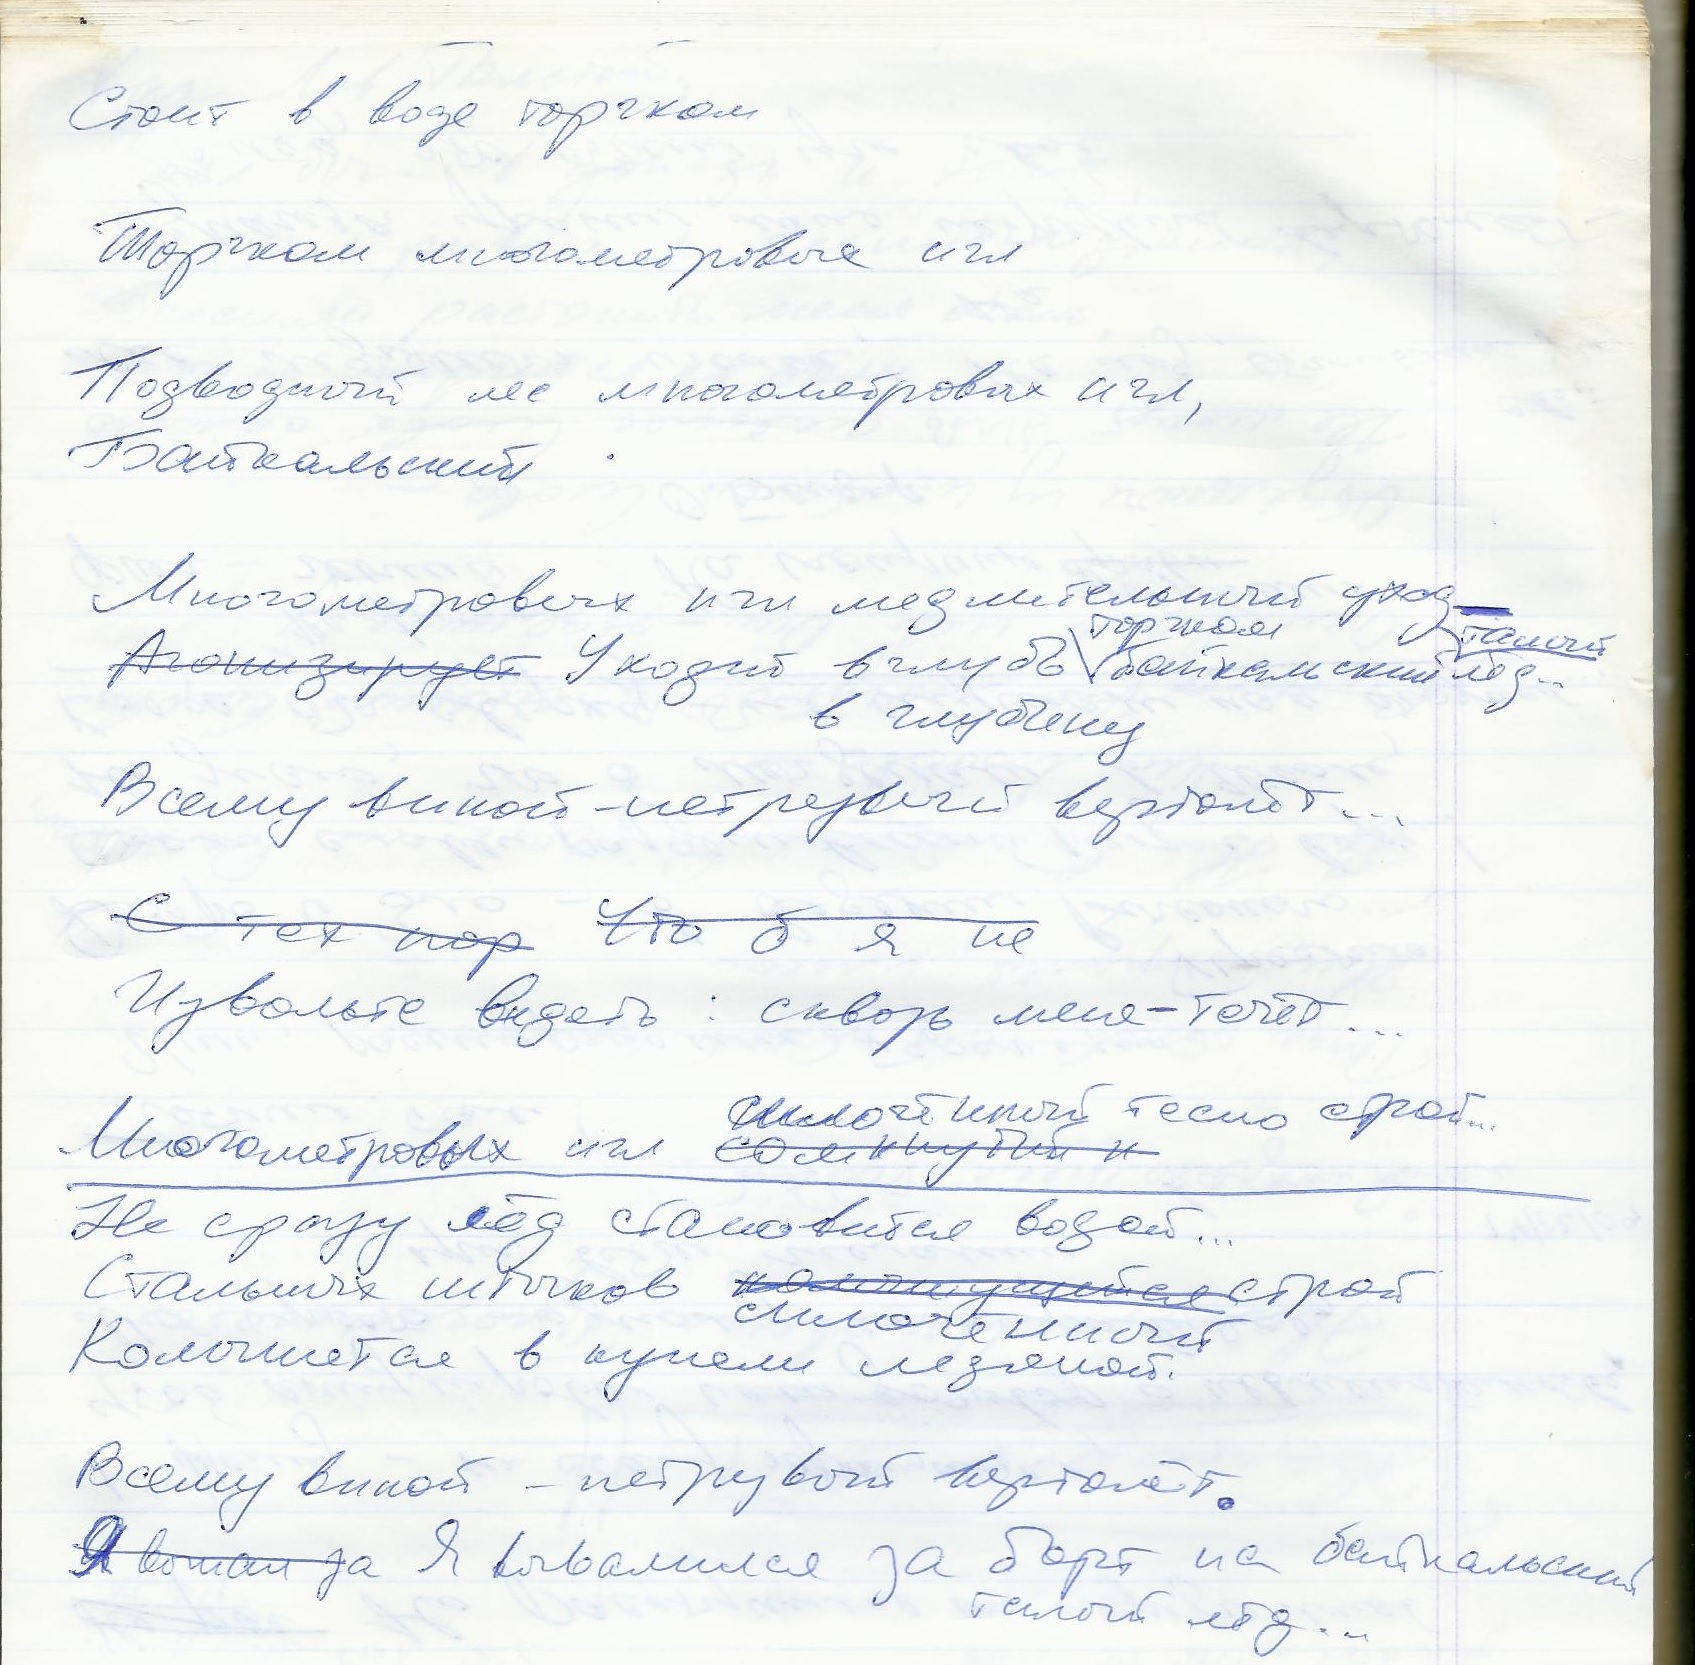 Стоит в воде торчком
Торчком многометровые игл
Подводный лес многометровых игл,
Байкальский
Многометровых игл медлительный уход
торчком талый
Агонизирует Уходит вглубь байкальский лёд...
в глубину
Всему виной - нетрезвый вертолёт...
С тех пор Что б я не
Извольте видеть: сквозь меня - течёт...
сплочённый тесно строй...
Многометровых игл сомкнутый и
Не сразу лёд становится водой...
Стальных штыков колышущийся строй
сплочённый
Колышется в купели ледяной.
Всему виной - нетрезвый вертолёт.
Я выпал за Я вывалился за борт на байкальский
талый лёд...